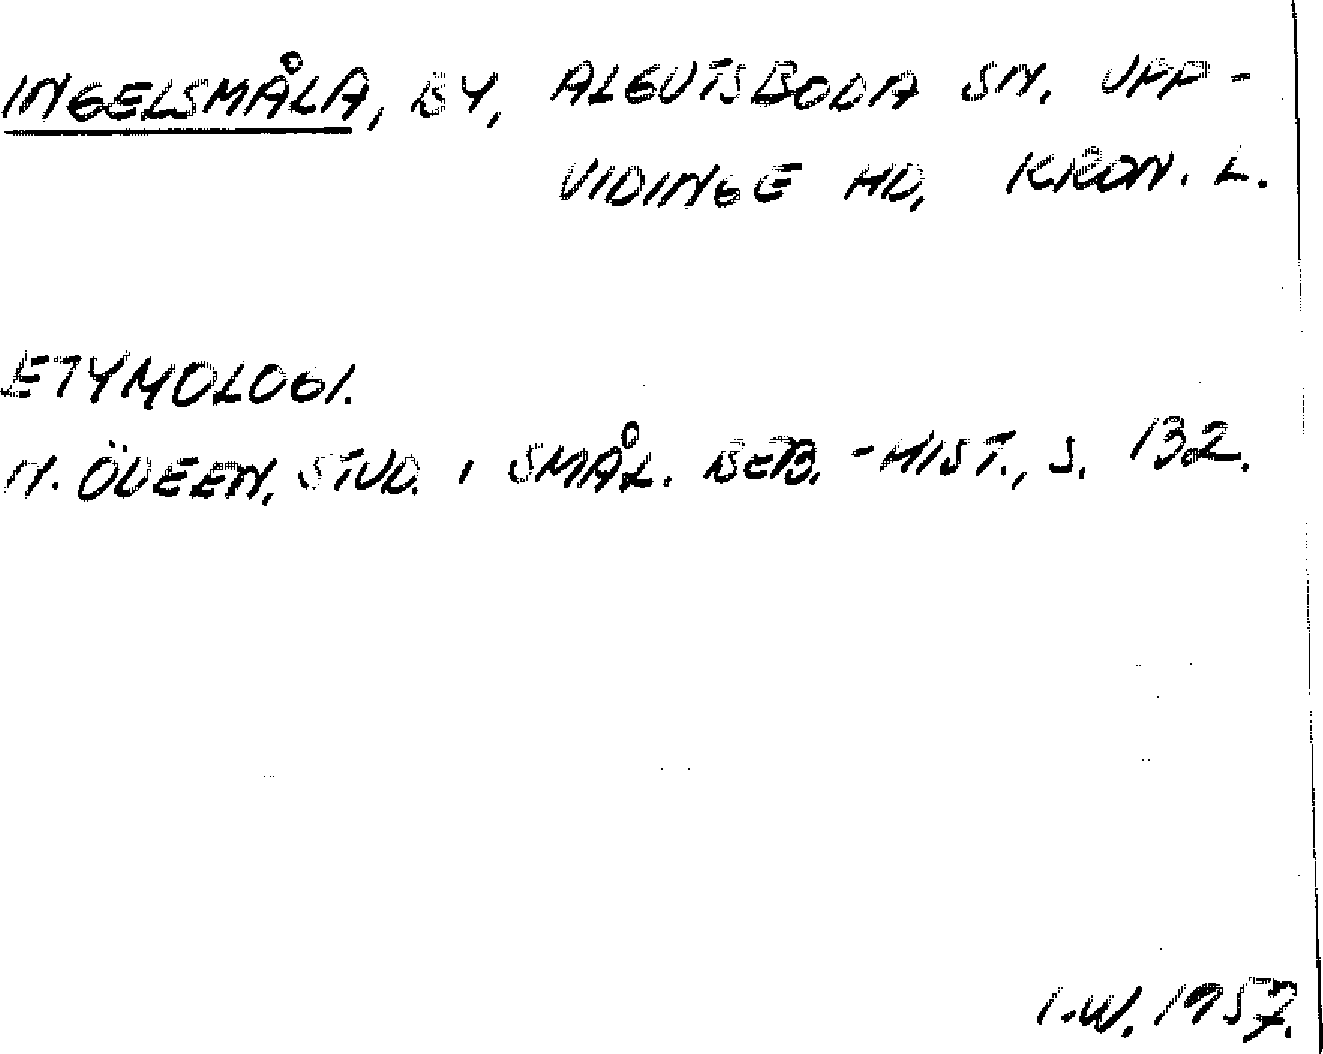 INGELSMÅLA, BY, ALGUTSBODA SN. UPP-
VIDINGE HD, KRON. L.
ETYMOLOGI.
N. ÖDEEN, STUD. I SMÅL. BEB.-HIST., S. 132.
I.W. 1957.